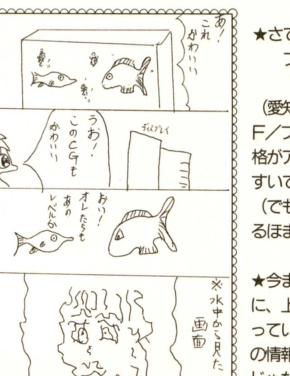 あ！
これ
かわいい
うお！
このCGも
かわいい
ディスプレイ
おい！
オレたちも
あの
レベルか
※水中から見た
画面
★さて
（愛知
F／フ
格がア
すいて
（でも
るほま
★今ま
に、上
ってい
の情報